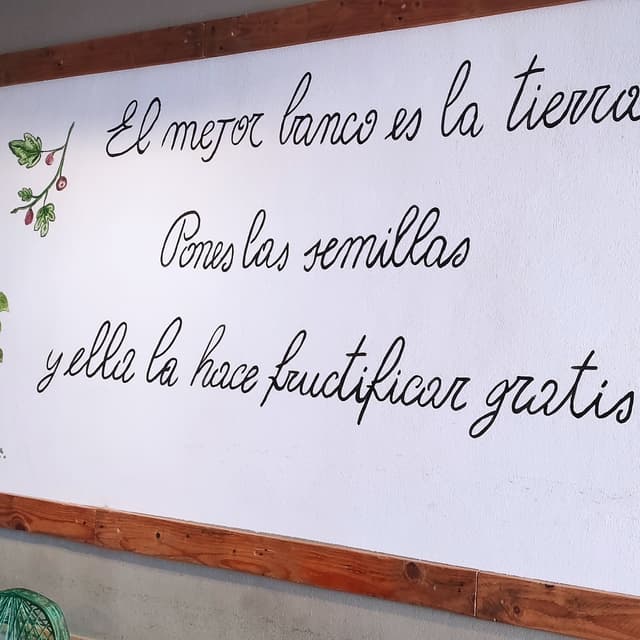 El mejor banco es la tierra
Pones las semillas
y ella la hace fructificar gratis